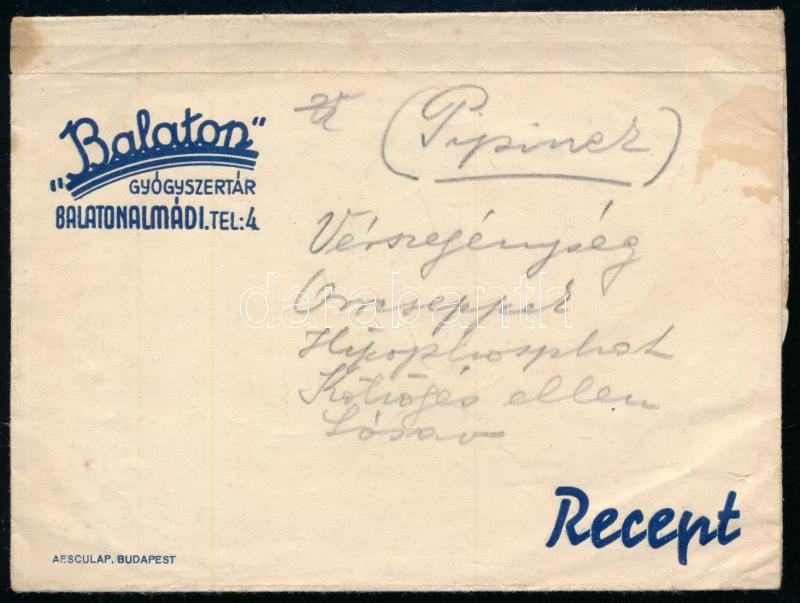 "Balaton"
GYÓGYSZERTÁR
BALATONALMÁDI.TEL:4
(Pipinek)
Vérszegénység
Orrcseppek
Hypophosphat
Köhögés ellen
Sósav
darabanth
Recept
AESCULAP, BUDAPEST